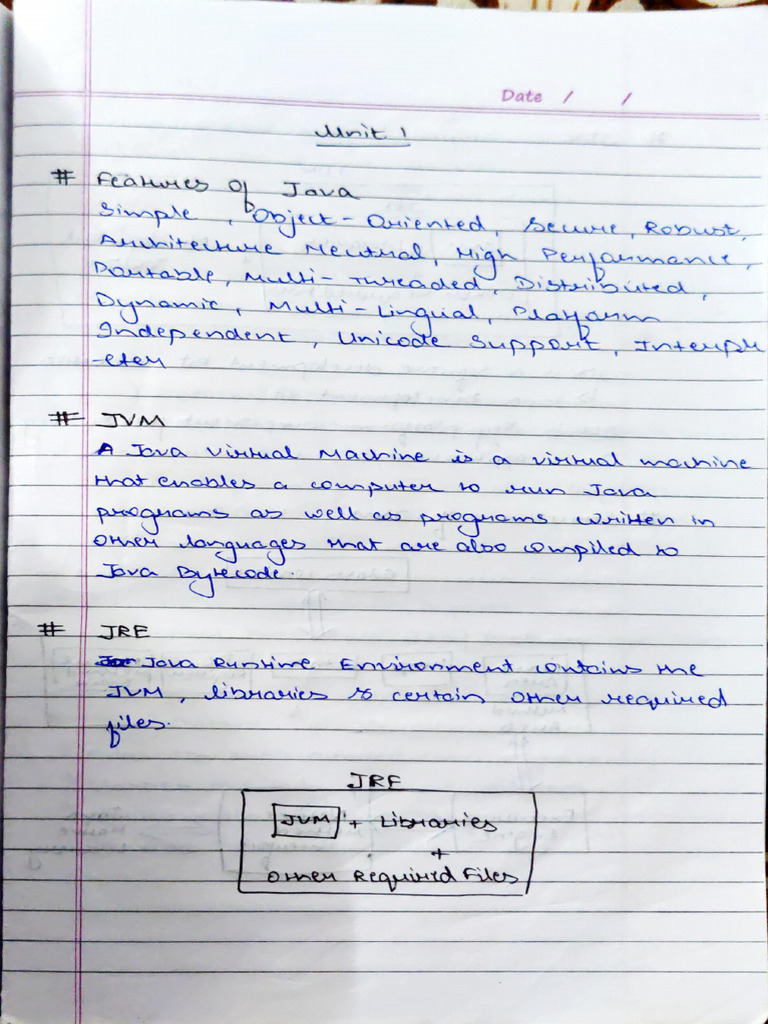 Date / /
Unit 1
# Features of Java
Simple, Object-Oriented, Secure, Robust,
Architecture Neutral, High Performance,
Portable, Multi-Threaded, Distributed,
Dynamic, Multi-Lingual, Platform
Independent, Unicode Support, Interpr
-eter
# JVM
A Java Virtual Machine is a virtual machine
that enables a computer to run Java
programs as well as programs written in
other languages that are also compiled to
Java Bytecode.
# JRE
Java Runtime Environment contains the
JVM, libraries & certain other required
files.
JRE
JVM + Libraries
+
Other Required Files